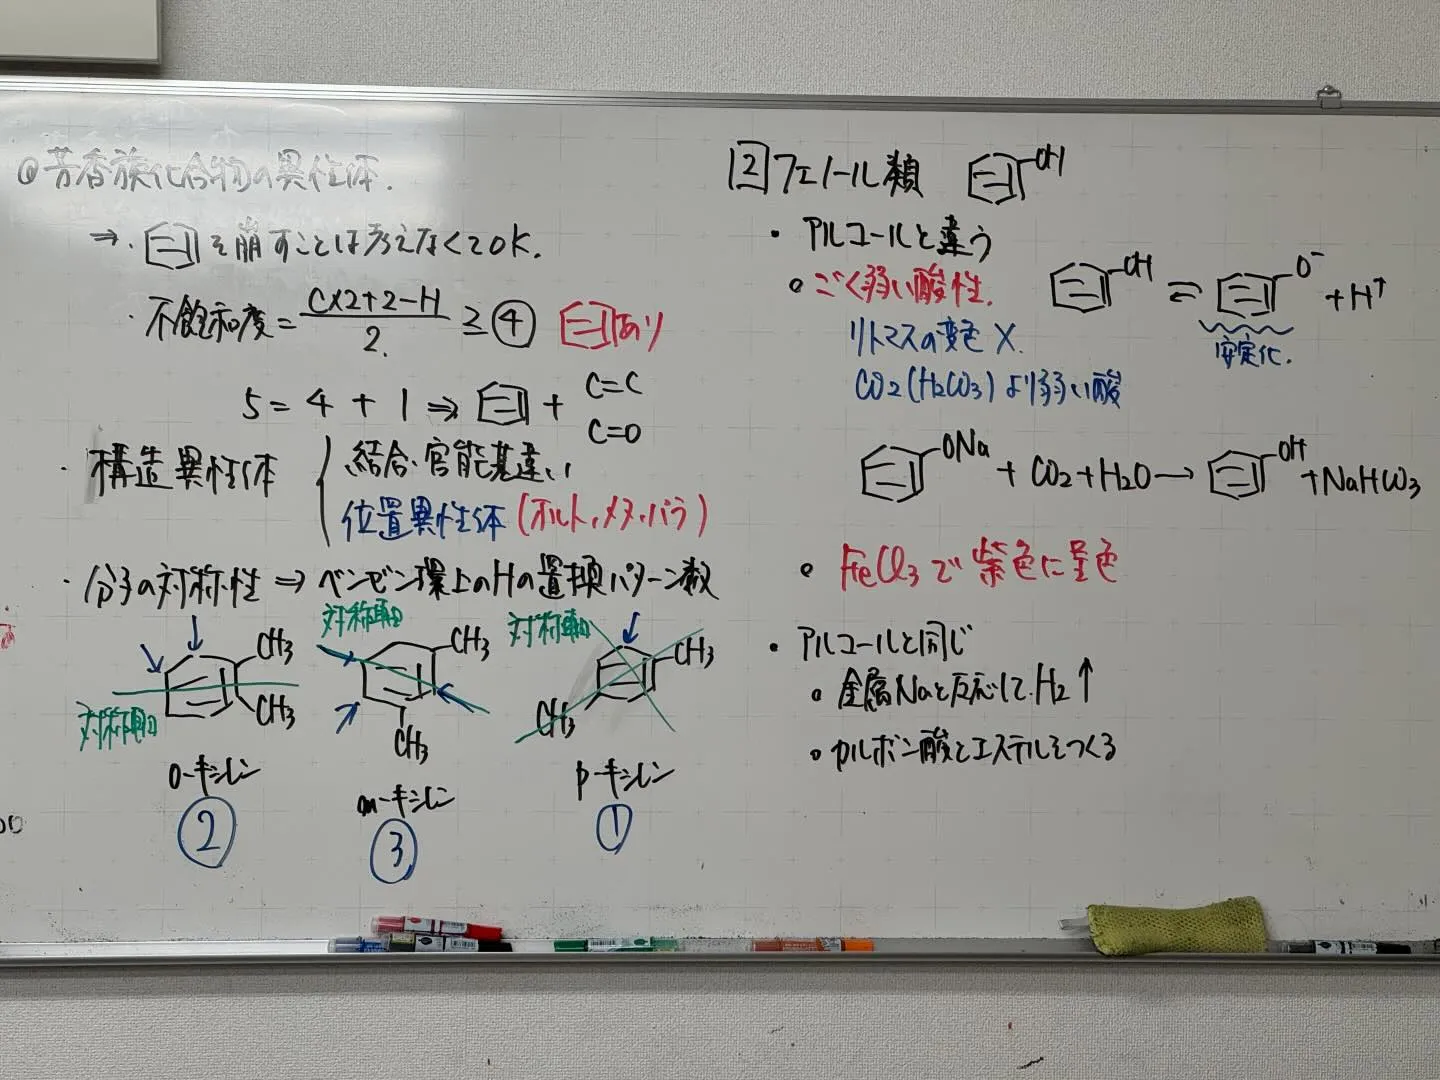 ◎芳香族化合物の異性体.
⇒・を崩すことは考えなくてOK.
・不飽和度=C×2+2-H/2 ≧④ あり
5=4+1⇒+C=C
C=O
・構造異性体{結合、官能基違い
位置異性体(オルト、メタ、パラ)
・分子の対称性⇒ベンゼン環上のHの置換パターン数
対称軸 CH3 CH3
o-キシレン
②
対称軸 CH3 CH3
m-キシレン
③
対称軸 CH3 CH3
p-キシレン
①
2 フェノール類 OH
・アルコールと違う
。ごく弱い酸性.
OH ⇌ O⁻ +H⁺
安定化.
リトマスの変色 X.
CO2(H2CO3)より弱い酸
ONa +CO2+H2O→ OH +NaHCO3
。FeCl3で紫色に呈色
・アルコールと同じ
。金属Naと反応してH2↑
。カルボン酸とエステルをつくる